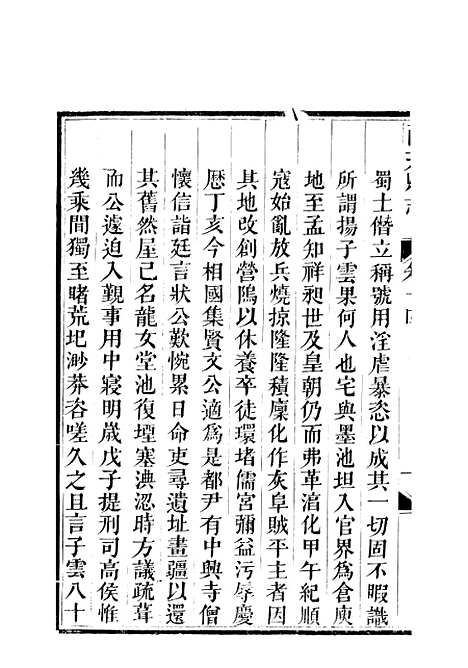 蜀土僭立稱號用淫虐暴恣以成其一切固不暇識
所謂揚子雲果何人也宅與墨池坦入官界為倉庾
地至孟知祥昶世及皇朝仍而弗革淯化甲午紀順
寇始亂放兵燒掠隆隆積廩化作灰阜賊平主者因
其地改創營隖以休養卒徒環堵儒宮彌益污辱慶
厯丁亥今相國集賢文公適為是都尹有中興寺僧
懷信詣廷言狀公歎惋累日命吏尋遺址畫疆以還
其舊然屋已名龍女堂池復堙塞淟涊時方議疏葺
而公遽迫入覲事用中寢明歲戊子提刑司高侯惟
幾乘間獨至睹荒圯渺莽咨嗟久之且言子雲八十